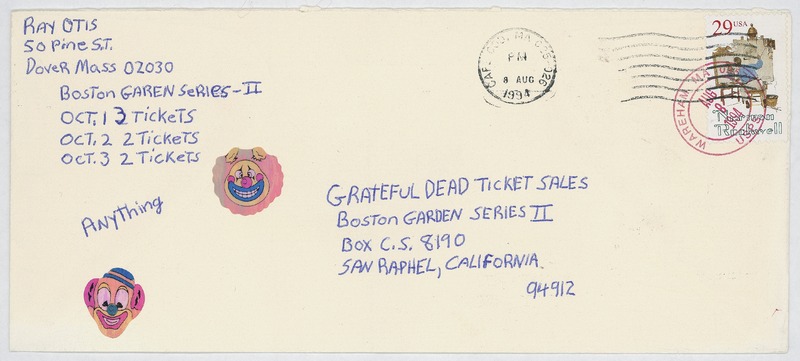 RAY OTIS
50 Pine S.T.
Dover Mass 02030
Boston GAREN SeRies-II
OCT. 1 3 TickeTS
OCT. 2 2 TickeTS
OCT. 3 2 TickeTS
Anything
GRATEFUL DEAD TICKET SALES
Boston GARDEN SERIES II
Box C.S. 8190
SAN RAPHEL, CALIFORNIA.
94912
PM
8 AUG
1994
29 USA
Norman
Rockwell
WAREHAM, MA
AUG
USPS